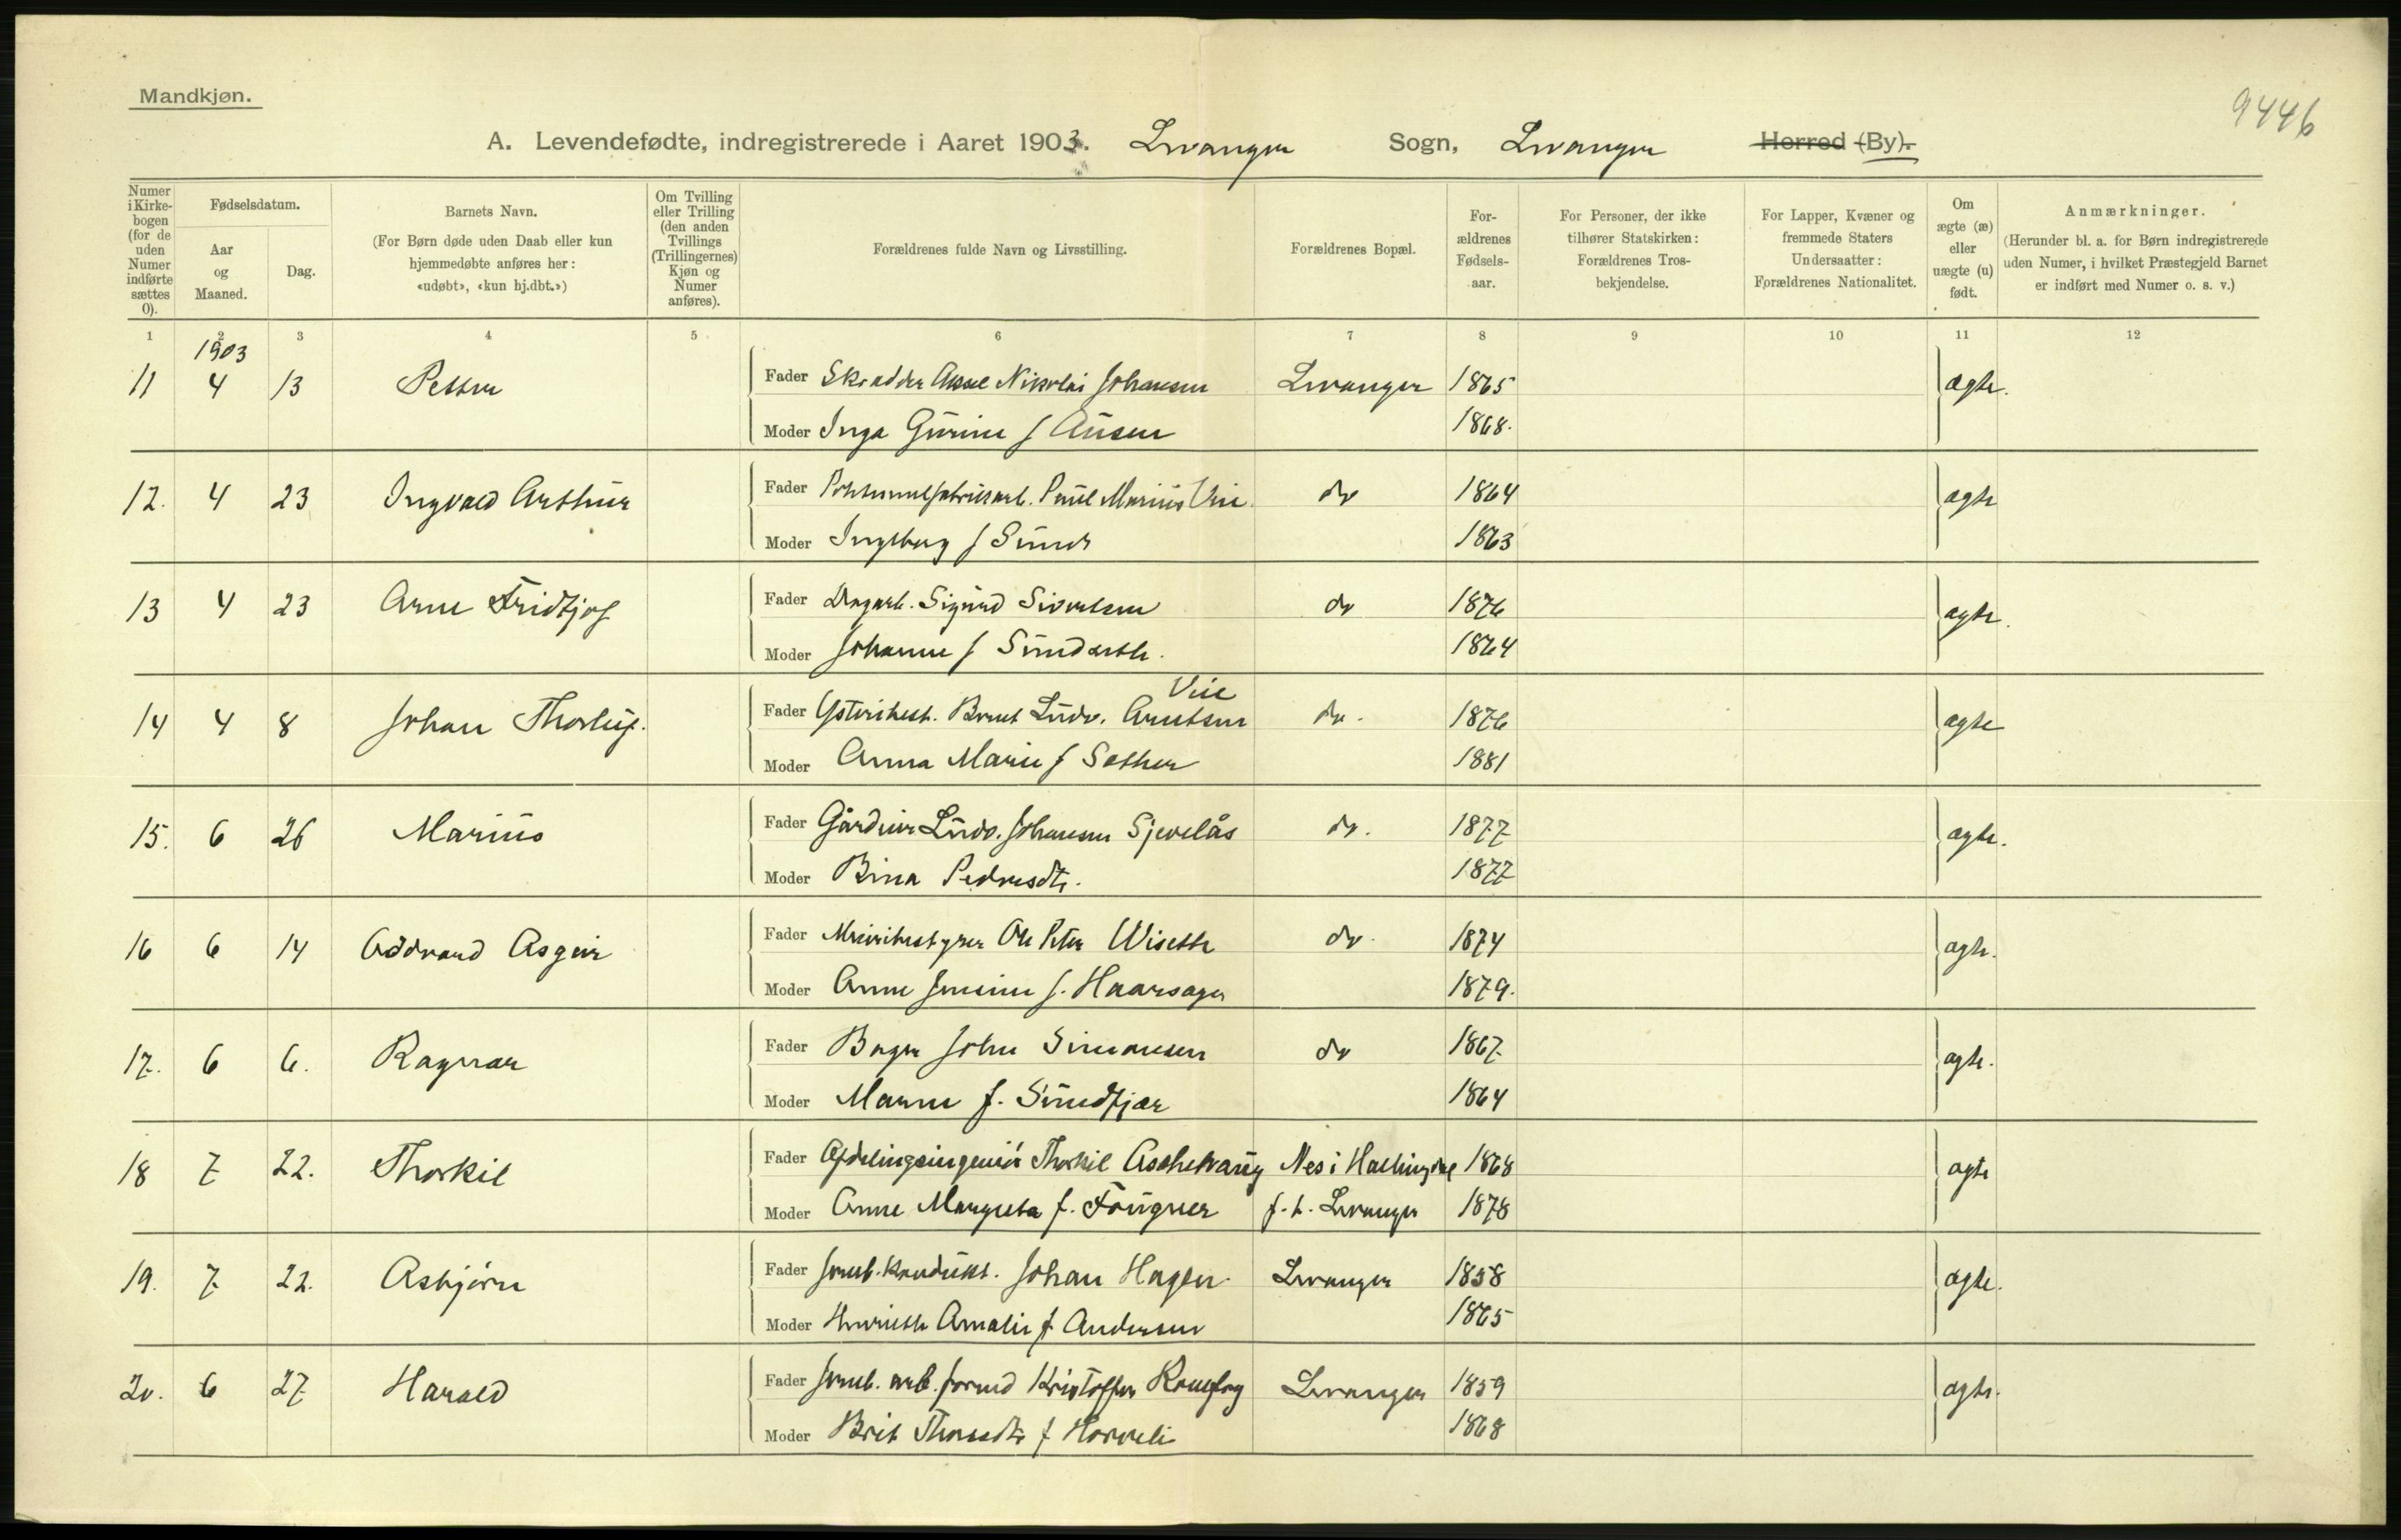 Mandkjøn.
9446
A. Levendefødte, indregistrerede i Aaret 1903. Levanger Sogn, Levanger Herred (By).
Numer i Kirke-bogen (for de uden Numer indførte sættes 0).
Fødselsdatum.
Aar og Maaned.
Dag.
Barnets Navn.
(For Børn døde uden Daab eller kun hjemmedøbte anføres her: «udøbt», «kun hj.dbt.»)
Om Tvilling eller Trilling (den anden Tvillings (Trillingernes) Kjøn og Numer anføres).
Forældrenes fulde Navn og Livsstilling.
Forældrenes Bopæl.
For-ældrenes Fødsels-aar.
For Personer, der ikke tilhører Statskirken: Forældrenes Tros-bekjendelse.
For Lapper, Kvæner og fremmede Staters Undersaatter: Forældrenes Nationalitet.
Om ægte (æ) eller uægte (u) født.
Anmærkninger.
(Herunder bl. a. for Børn indregistrerede uden Numer, i hvilket Præstegjeld Barnet er indført med Numer o. s. v.)
1 2 3 4 5 6 7 8 9 10 11 12
1903
11 4 13 Petter Fader Skrædder Aksel Nikolai Johansen Levanger 1865 ægte.
Moder Inga Gurine f Ausen 1868.
12. 4 23 Ingvald Arthur Fader Paul Marius Vie do 1864 ægte
Moder Ingeborg f Sunde 1863
13 4 23 Arne Fridtjof Fader Dagarb. Sigurd Sivertsen do 1876 ægte.
Moder Johanne f 1864
14 4 8 Johan Fader Bernt Ludv. Arntsen Vie do. 1876 ægte
Moder Anna Marie f Sæther 1881
15. 6 26 Marius Fader Gårdeier Ludv. Johansen Sjevelås do. 1877 ægte.
Moder Bina Pedersdtr. 1877
16 6 14 Oddvard Asgeir Fader Meieribestyrer Ole Peter Wiseth do. 1874 ægte.
Moder Anne Jensine f. Haarsager 1879.
17. 6 6. Ragnar Fader Bager John Simonsen do 1867 ægte.
Moder Maren f. Sundfjær 1864
18 7 22. Thorkil Fader Afdelingsingeniør Thorkil Aschehaug Nes i Hallingdal 1868 ægte
Moder Anne Margreta f. Fougner f. t. Levanger 1878
19. 7 22. Asbjørn Fader Jernb. kondukt. Johan Hagen Levanger 1858 ægte.
Moder Henriette Amalie f Andersen 1865
20. 6 27 Harald Fader Jernb. arb. formd Kristoffer Levanger 1859 ægte.
Moder Brit f 1868